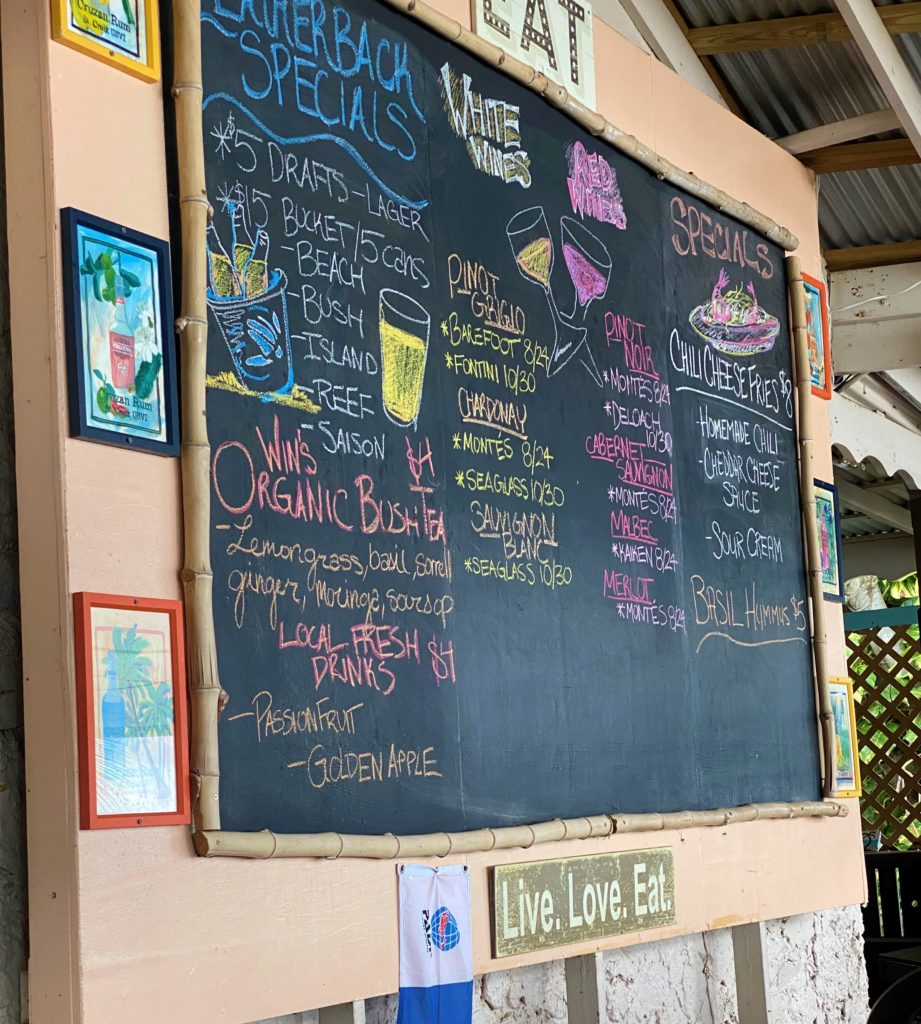 Cruzan Rum
St. Croix USVI
EAT
LEATHERBACK
SPECIALS
*$5 DRAFTS - LAGER
*$15 BUCKET/5 cans
- BEACH
- BUSH
- ISLAND
- REEF
- SAISON
WIN'S $4
ORGANIC BUSH TEA
- Lemongrass, basil, sorrell
ginger, Moringa, soursop
LOCAL FRESH
DRINKS $4
- PASSIONFRUIT
- GOLDEN APPLE
WHITE
WINES
PINOT
GRIGIO
*BAREFOOT 8/24
*FONTINI 10/30
CHARDONAY
*MONTES 8/24
*SEAGLASS 10/30
SAUVIGNON
BLANC
*SEAGLASS 10/30
RED
WINES
PINOT
NOIR
*MONTES 8/24
*DELOACH
10/30
CABERNET
SAUVIGNON
*MONTES 8/24
MALBEC
*KAIKEN 8/24
MERLOT
*MONTES 8/24
SPECIALS
CHILI CHEESE FRIES $8
- HOMEMADE CHILI
- CHEDDAR CHEESE
SAUCE
- SOUR CREAM
BASIL HUMMUS $5
Cruzan Rum
St. Croix USVI
Live. Love. Eat.